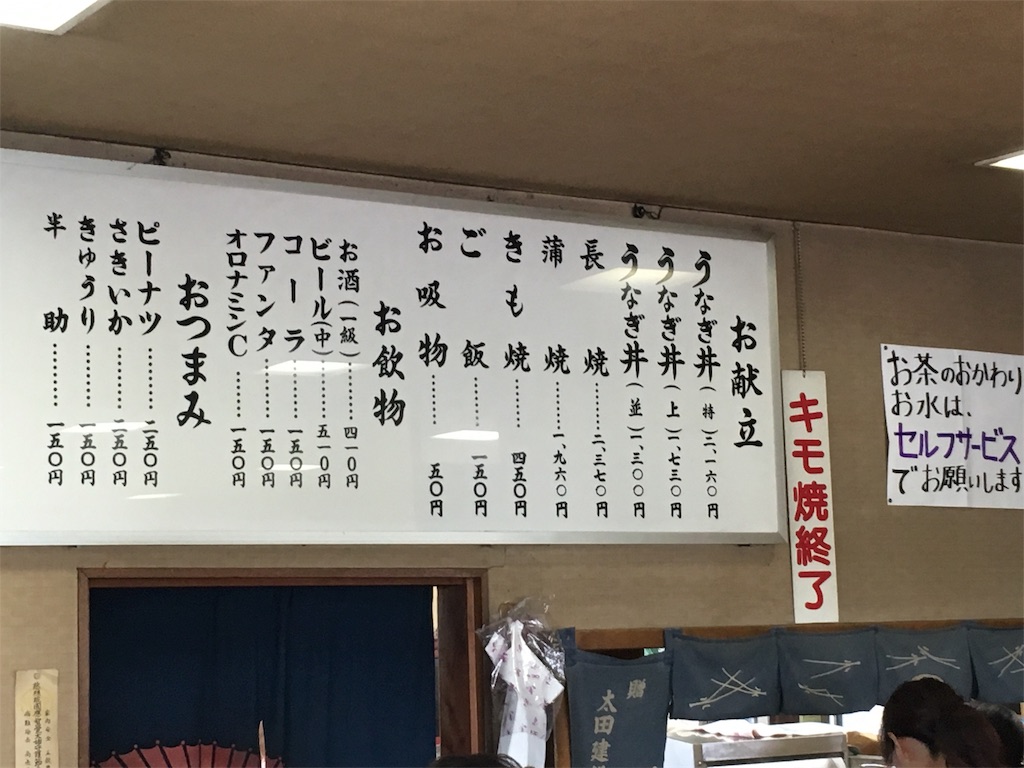 お献立
うなぎ丼(特)二、一六〇円
うなぎ丼(上)一、七三〇円
うなぎ丼(並)一、三〇〇円
長焼………二、三七〇円
蒲焼………一、九六〇円
きも焼………四五〇円
ご飯………一五〇円
お吸物………五〇円
お飲物
お酒(一級)………四一〇円
ビール(中)………五一〇円
コーラ………一五〇円
ファンタ………一五〇円
オロナミンC………一五〇円
おつまみ
ピーナツ………二五〇円
さきいか………二五〇円
きゅうり………一五〇円
半助………一五〇円
キモ焼終了
お茶のおかわり
お水は、
セルフサービス
でお願いします
贈
太田建